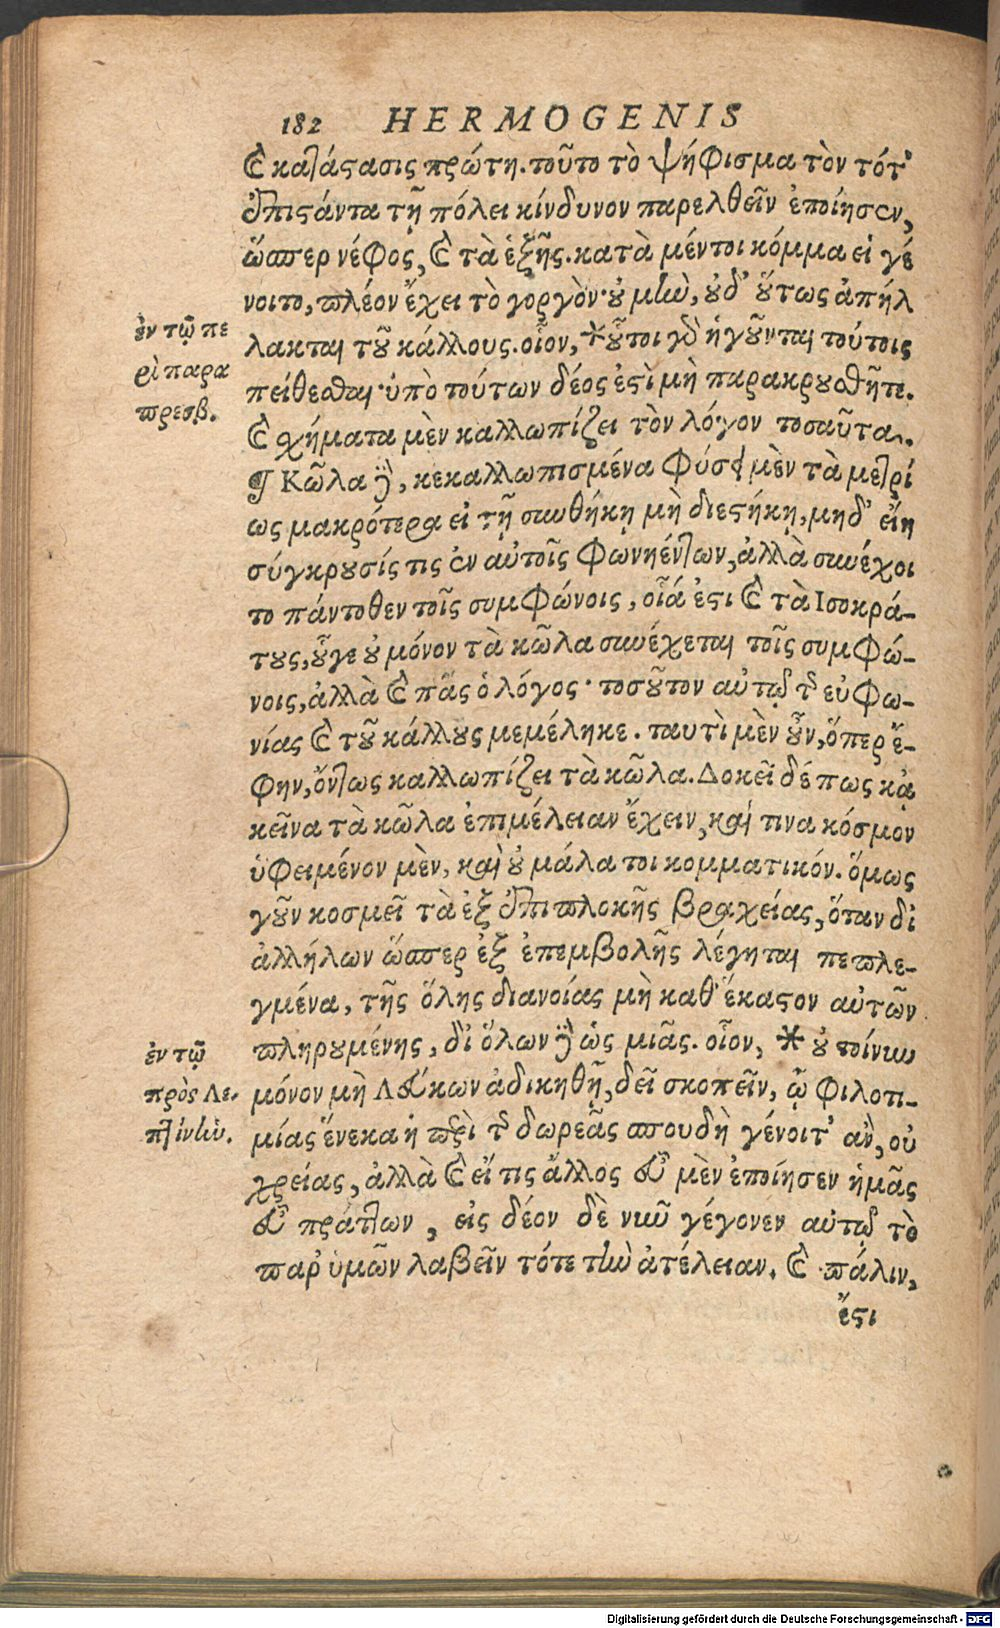 182 HERMOGENIS
καὶ κατάστασις πρώτη. τοῦτο τὸ ψήφισμα τὸν τότ'
ἐπιστάντα τῇ πόλει κίνδυνον παρελθεῖν ἐποίησεν,
ὥσπερ νέφος, καὶ τὰ ἑξῆς. κατὰ μέντοι κόμμα εἰ γέ
νοιτο, πλέον ἔχει τὸ γοργὸν· οὐ μὴν, οὐδ' οὕτως ἀπήλ
ἐν τῷ πε
λακται τοῦ κάλλους. οἷον, *οὗτοι γὰρ ἡγοῦνται τούτοις
ρὶ παρα
πείθεσθαι· ὑπὸ τούτων δέος ἐστὶ μὴ παρακρουσθῆτε.
πρεσβ.
καὶ σχήματα μὲν καλλωπίζει τὸν λόγον τοσαῦτα.
¶ Κῶλα δὲ, κεκαλλωπισμένα φύσει μὲν τὰ μετρί
ως μακρότερα εἰ τῇ συνθήκῃ μὴ διεστήκῃ, μηδ' εἴη
σύγκρουσίς τις ἐν αὐτοῖς φωνηέντων, ἀλλὰ συνέχοι
το πάντοθεν τοῖς συμφώνοις, οἷά ἐστι καὶ τὰ Ισοκρά-
τους, οὗγε οὐ μόνον τὰ κῶλα συνέχεται τοῖς συμφώ-
νοις, ἀλλὰ καὶ πᾶς ὁ λόγος· τοσοῦτον αὐτῷ τῆς εὐφω-
νίας καὶ τοῦ κάλλους μεμέληκε. ταυτὶ μὲν οὖν, ὅπερ ἔ-
φην, ὄντως καλλωπίζει τὰ κῶλα. Δοκεῖ δέ πως κᾀ
κεῖνα τὰ κῶλα ἐπιμέλειαν ἔχειν, καί τινα κόσμον
ὑφειμένον μὲν, καὶ οὐ μάλα τοι κομματικόν. ὅμως
γοῦν κοσμεῖ τὰ ἐξ ἐπιπλοκῆς βραχείας, ὅταν δι
ἀλλήλων ὥσπερ ἐξ ἐπεμβολῆς λέγηται πεπλε-
γμένα, τῆς ὅλης διανοίας μὴ καθ' ἕκαστον αὐτῶν
ἐν τῷ
πληρουμένης, δι' ὅλων δὲ ὡς μιᾶς. οἷον, * οὐ τοίνυν
πρὸς Λε-
μόνον μὴ Λεύκων ἀδικηθῇ, δεῖ σκοπεῖν, ᾧ φιλοτι-
πτίνην.
μίας ἕνεκα ἡ περὶ τῆς δωρεᾶς σπουδὴ γένοιτ' ἂν, οὐ
χρείας, ἀλλὰ καὶ εἴ τις ἄλλος εὖ μὲν ἐποίησεν ἡμᾶς
εὖ πράττων, εἰς δέον δὲ νυνῦ γέγονεν αὐτῷ τὸ
παρ' ὑμῶν λαβεῖν τότε τὴν ἀτέλειαν. καὶ πάλιν,
ἔστι
Digitalisierung gefördert durch die Deutsche Forschungsgemeinschaft - DFG